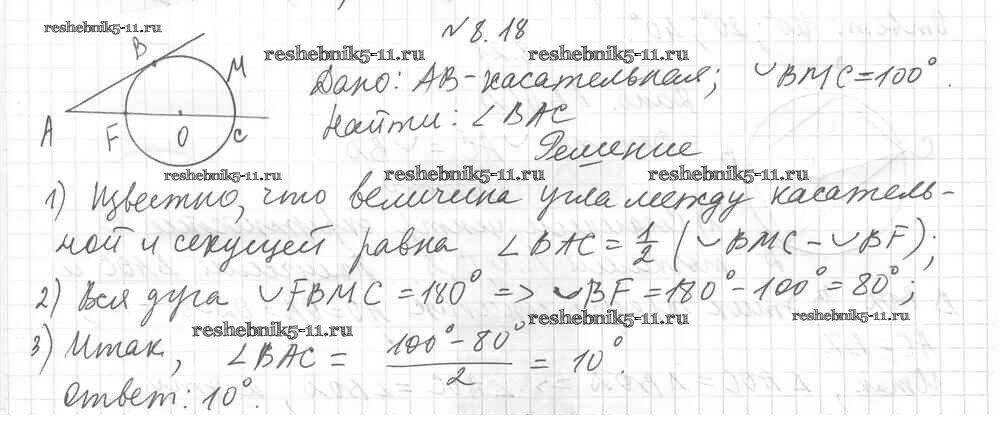 reshebnik5-11.ru
N 8.18
reshebnik5-11.ru
B
M
A
F
O
C
Дано: AB - касательная; ◡BMC = 100°.
Найти: ∠BAC
reshebnik5-11.ru
Решение
reshebnik5-11.ru
reshebnik5-11.ru
reshebnik5-11.ru
1) Известно, что величина угла между касатель-
ной и секущей равна ∠BAC = 1/2 (◡BMC - ◡BF);
2) Вся дуга ◡FBMC = 180° => ◡BF = 180° - 100° = 80°;
reshebnik5-11.ru
reshebnik5-11.ru
reshebnik5-11.ru
3) Итак, ∠BAC = (100° - 80°)/2 = 10°.
Ответ: 10°.